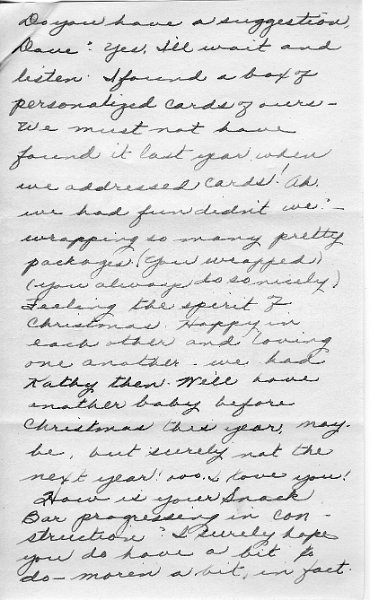 Do you have a suggestion,
Dave? Yes, I'll wait and
listen. I found a box of
personalized cards of ours -
We must not have
found it last year when
we addressed cards! Ah,
we had fun didn't we? -
wrapping so many pretty
packages. (You wrapped)
(you always do so nicely)
Feeling the spirit of
Christmas. Happy in
each other and loving
one another - we had
Kathy then. Will have
another baby before
Christmas this year, may-
be, but surely not the
next year! ooo. I love you!
How is your Snack
Bar progressing in con-
struction? I surely hope
you do have a bit to
do - more'n a bit, in fact.